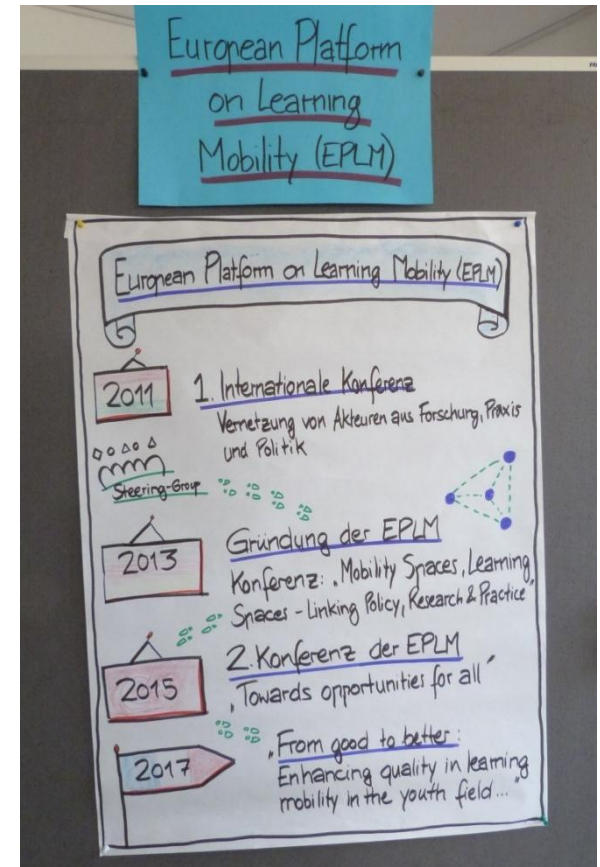 European Platform
on Learning
Mobility (EPLM)
European Platform on Learning Mobility (EPLM)
2011
1. Internationale Konferenz
Vernetzung von Akteuren aus Forschung, Praxis
und Politik
Steering-Group
2013
Gründung der EPLM
Konferenz: „Mobility Spaces, Learning
Spaces - Linking Policy, Research & Practice“
2015
2. Konferenz der EPLM
„Towards opportunities for all“
2017
„From good to better:
Enhancing quality in learning
mobility in the youth field..."